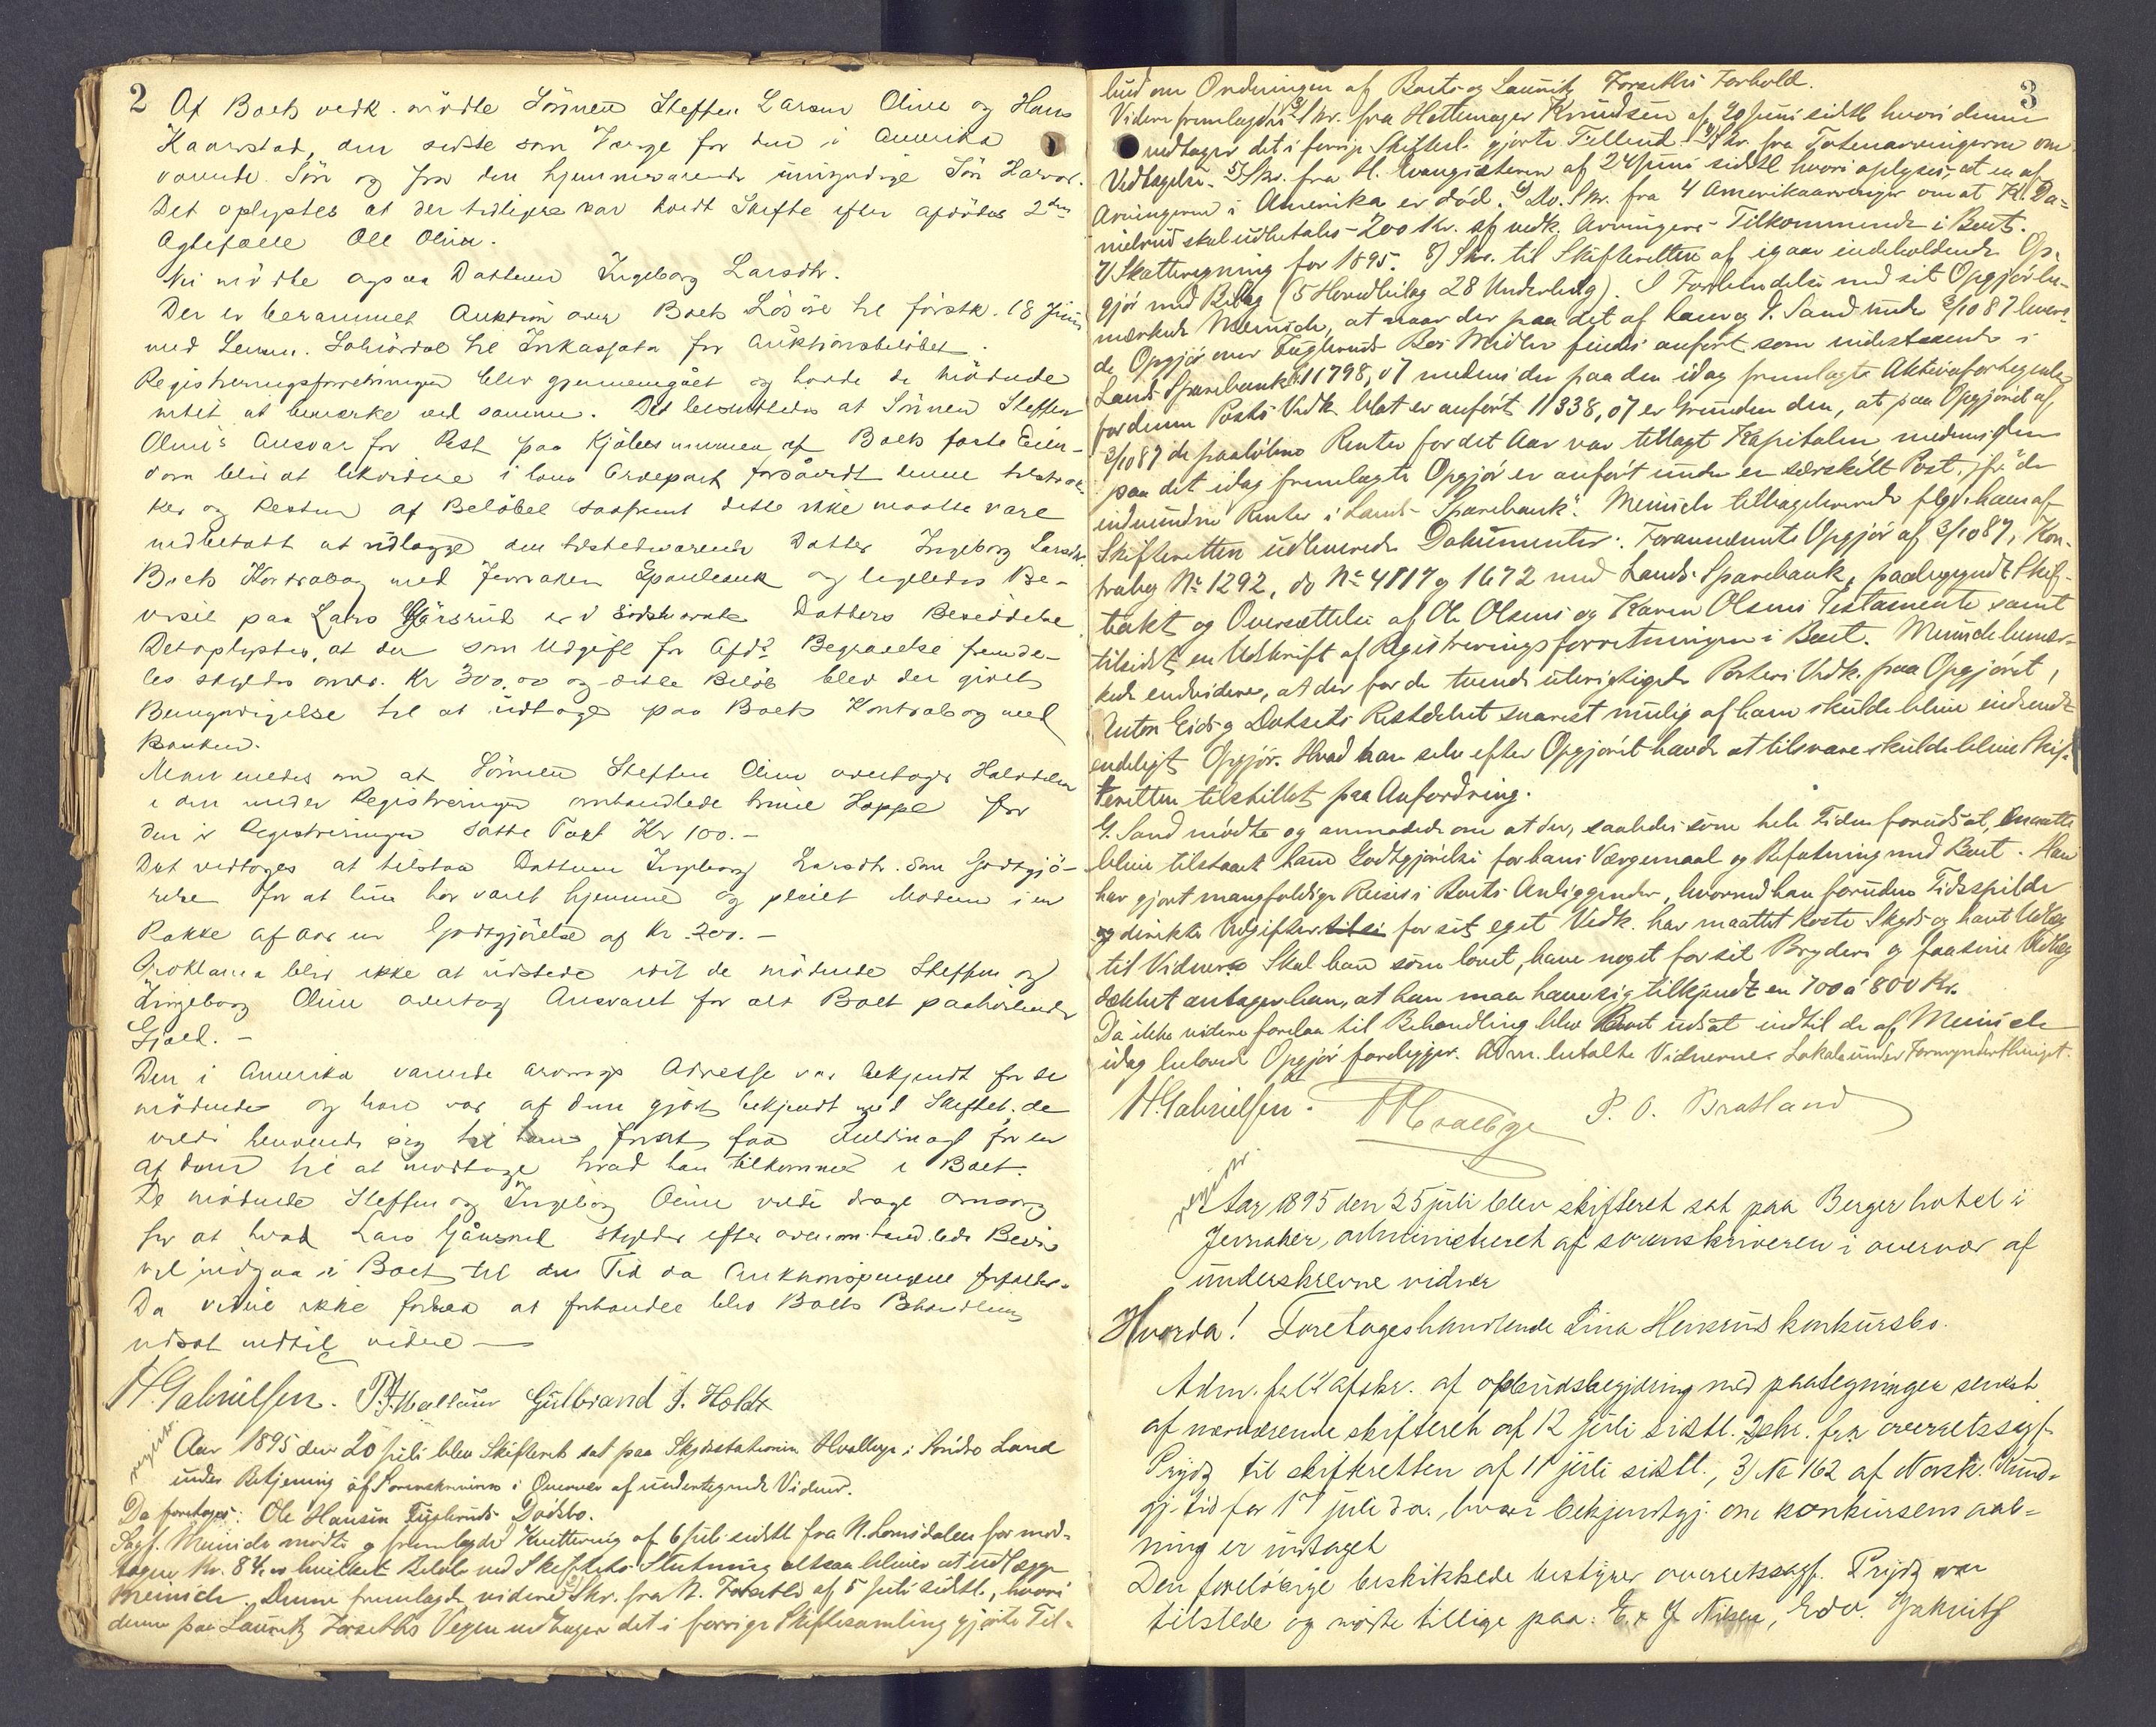 2
Af Boets vedk. mødte Sønnen Steffen Larsen Olien og Hans
Kaarstad, den sidste som Værge for den i Amerika
værende Søn og for den hjemmeværende umyndige Søn Halvor.
Det oplystes at der tidligere var holdt Skifte efter afdødes 2den
Ægtefælle Ole Olien.
Nu mødte ogsaa Datteren Ingeborg Larsdtr.
Der er berammet Auktion over Boets Løsøre til førstk. 18 Juni
med Lensm. Sohlørdal til Inkassator for Auktionsbeløbet.
Registreringsforretningen blev gjennemgaaet og havde de mødende
intet at bemærke ved samme. Det besluttedes at Sønnen Steffen
Oliens Ansvar for Rest paa Kjøbesummen af Boets faste Eien-
dom blev at likvidere i hans Arvepart forsåvidt denne tilstræk-
ker og Resten af Beløbet saafremt dette ikke maatte være
nedbetalt at udlægge den tilstedeværende Datter Ingeborg Larsdtr.
Boets Kontrabog med Jevnaker Sparebank og ligeledes Be-
viset paa Lars Gårsrud er i sidstnævnte Datters Besiddelse.
Det oplystes, at der som Udgift for Afd. Begravelse fremde-
les skyldes omtr. Kr 300,00 og dette Beløb blev der givet
Bemyndigelse til at udtage paa Boets Kontrabog med
Banken.
Man enedes om at Sønnen Steffen Olien overtager Halvdelen
i den under Registreringen omhandlede brune Hoppe for
den i Registreringen satte Taxt Kr 100.-
Det vedtoges at tilstaa Datteren Ingeborg Larsdtr. som Godtgjø-
relse for at hun har været hjemme og pleiet Moderen i en
Række af Aar en Godtgjørelse af Kr 200.-
Proklama blev ikke at udstede idet de mødende Steffen og
Ingeborg Olien overtog Ansvaret for al Boet paahvilende
Gjæld.-
Den i Amerika værende Arvings Adresse var bekjendt for de
mødende og han var af dem gjort bekjendt med Skiftet, de
vilde henvende sig til ham for at faa Fuldmagt for en
af dem til at modtage hvad han tilkommer i Boet.
De mødende Steffen og Ingeborg Olien vilde drage Omsorg
for at hvad Lars Gårsrud skylder efter ovenomhandlede Bevis
vil indgaa i Boet til den Tid da Auktionspengene forfalder.
Da videre ikke forelaa at forhandle blev Boets Behandling
udsat indtil videre —
H. Gabrielsen. Gulbrand J. Holdt
Aar 1895 den 20 Juli blev Skifteret sat paa Skydsstationen Hvalbye i Søndre Land
under Betjening af Sorenskriveren i Overvær af undertegnede Vidner.
Da foretoges: Ole Hansen Fuglerruds Dødsbo.
Sagf. Meinich mødte og fremlagde Kvittering af 6 Juli sidstl fra N. Lomsdalen for mod-
tagne Kr. 84,00 hvilket Beløb ved Skiftets Slutning altsaa bliver at udlægge
Meinich. Denne fremlagde videre Skr. fra N. Forseth af 5 Juli sidstl., hvori
denne paa Lauritz Forseths Vegne vedtager det i forrige Skiftesamling gjorte Til-
3
bud om Ordningen af Boets og Lauritz Forseths Forhold.
Videre fremlagdes 3/ Skr. fra Hattemager Knudsen af 20 Juni sidstl hvori denne
vedtager det i forrige Skifteret gjorte Tilbud. 4/ Skr. fra Totenarvingerne om
Vedtagelse. 5/ Skr. fra H. Evangisteren af 24 Juni sidstl hvori oplyses, at en af
Arvingerne i Amerika er død. 6/ Do. Skr. fra 4 Amerikaarvinger om at K. Da-
nielrud skal udbetales 200 Kr. af vedk. Arvingers Tilkommende i Boet.
7/ Skatteregning for 1895. 8/ Skr. til Skifteretten af igaar indeholdende Op-
gjør med Bilag (5 Hovedbilag 28 Underbilag). I Forbindelse med sit Opgjør be-
mærkede Meinich, at naar der paa det af ham og G. Sand under 3/10 87 levere-
de Opgjør over Fuglerruds Bos Midler findes anført som indestaaende i
Lands Sparebank 11798,07 medens der paa den idag fremlagte Aktivafortegnelse
for denne Posts Vedk. blot er anført 11338,07 er Grunden den, at paa Opgjøret af
3/10 87 de paaløbne Renter for det Aar var tillagt Kapitalen medens den
paa det idag fremlagte Opgjør er anført under en særskilt Post, "fra de
indvundne Renter i Lands Sparebank". Meinich tilbageleverede flgd. ham af
Skifteretten udleverede Dokumenter: Forannævnte Opgjør af 3/10 87, Kon-
trabog No 1292, do No 4817 og 1672 med Lands Sparebank, paabegyndt Skif-
teakt og Oversættelse af Ole Olsens og Karen Olsens Testamente samt
tilsidst en Udskrift af Registreringsforretningen i Boet. Meinich bemær-
kede endvidere, at der for de tvende uberigtigede Posters Vedk. paa Opgjøret,
Anton Eids og Dotsets Restdebet snarest mulig af ham skulde blive indsendt
endeligt Opgjør. Hvad han selv efter Opgjøret havde at tilsvare skulde blive Skif-
teretten tilstillet paa Anfordring.
G. Sand mødte og anmodede om at der, saaledes som hele Tiden forudsat, maatte
blive tilstaaet ham Godtgjørelse for hans Værgemaal og Befatning med Boet. Han
har gjort mangfoldige Reiser i Boets Anliggender, hvorved han foruden Tidsspilde
og direkte Udgifter for sit eget Vedk. har maattet koste Skyds og havt Udlæg
til Vidner. Skal han som lovet, have noget for sit Bryderi og faa sine Udlæg
dækket antager han, at han maa have sig tilkjendt en 700 à 800 Kr.
Da ikke videre forelaa til Behandling blev Boet udsat indtil de af Meinich
idag lovede Opgjør foreligger. Adm. betalte Vidnerne. Lokale under Formynderthinget.
H. Gabrielsen. P. O. Bratland
Aar 1895 den 25 juli blev skifteret sat paa Berger hotel i
Jevnaker, administreret af sorenskriveren i overvær af
underskrevne vidner
Hvorda! Foretages handlende Lina Hensruds konkursbo.
Adm. frl. 1/ afskr. af opbudsbegjæring med paategninger senest
af nærværende skifteret af 12 juli sidstl. 2/ skr. fra overretssagf.
Prydz til skifteretten af 11 juli sidstl., 3/ No 162 af Norsk. Kund-
gj. tid for 17 juli d.a., hvori bekjendtgj. om konkursens aab-
ning er indtaget
Den foreløbige beskikkede bestyrer overretssagf. Prydz var
tilstede og mødte tillige paa: E. & J. Nilsen, Edv.